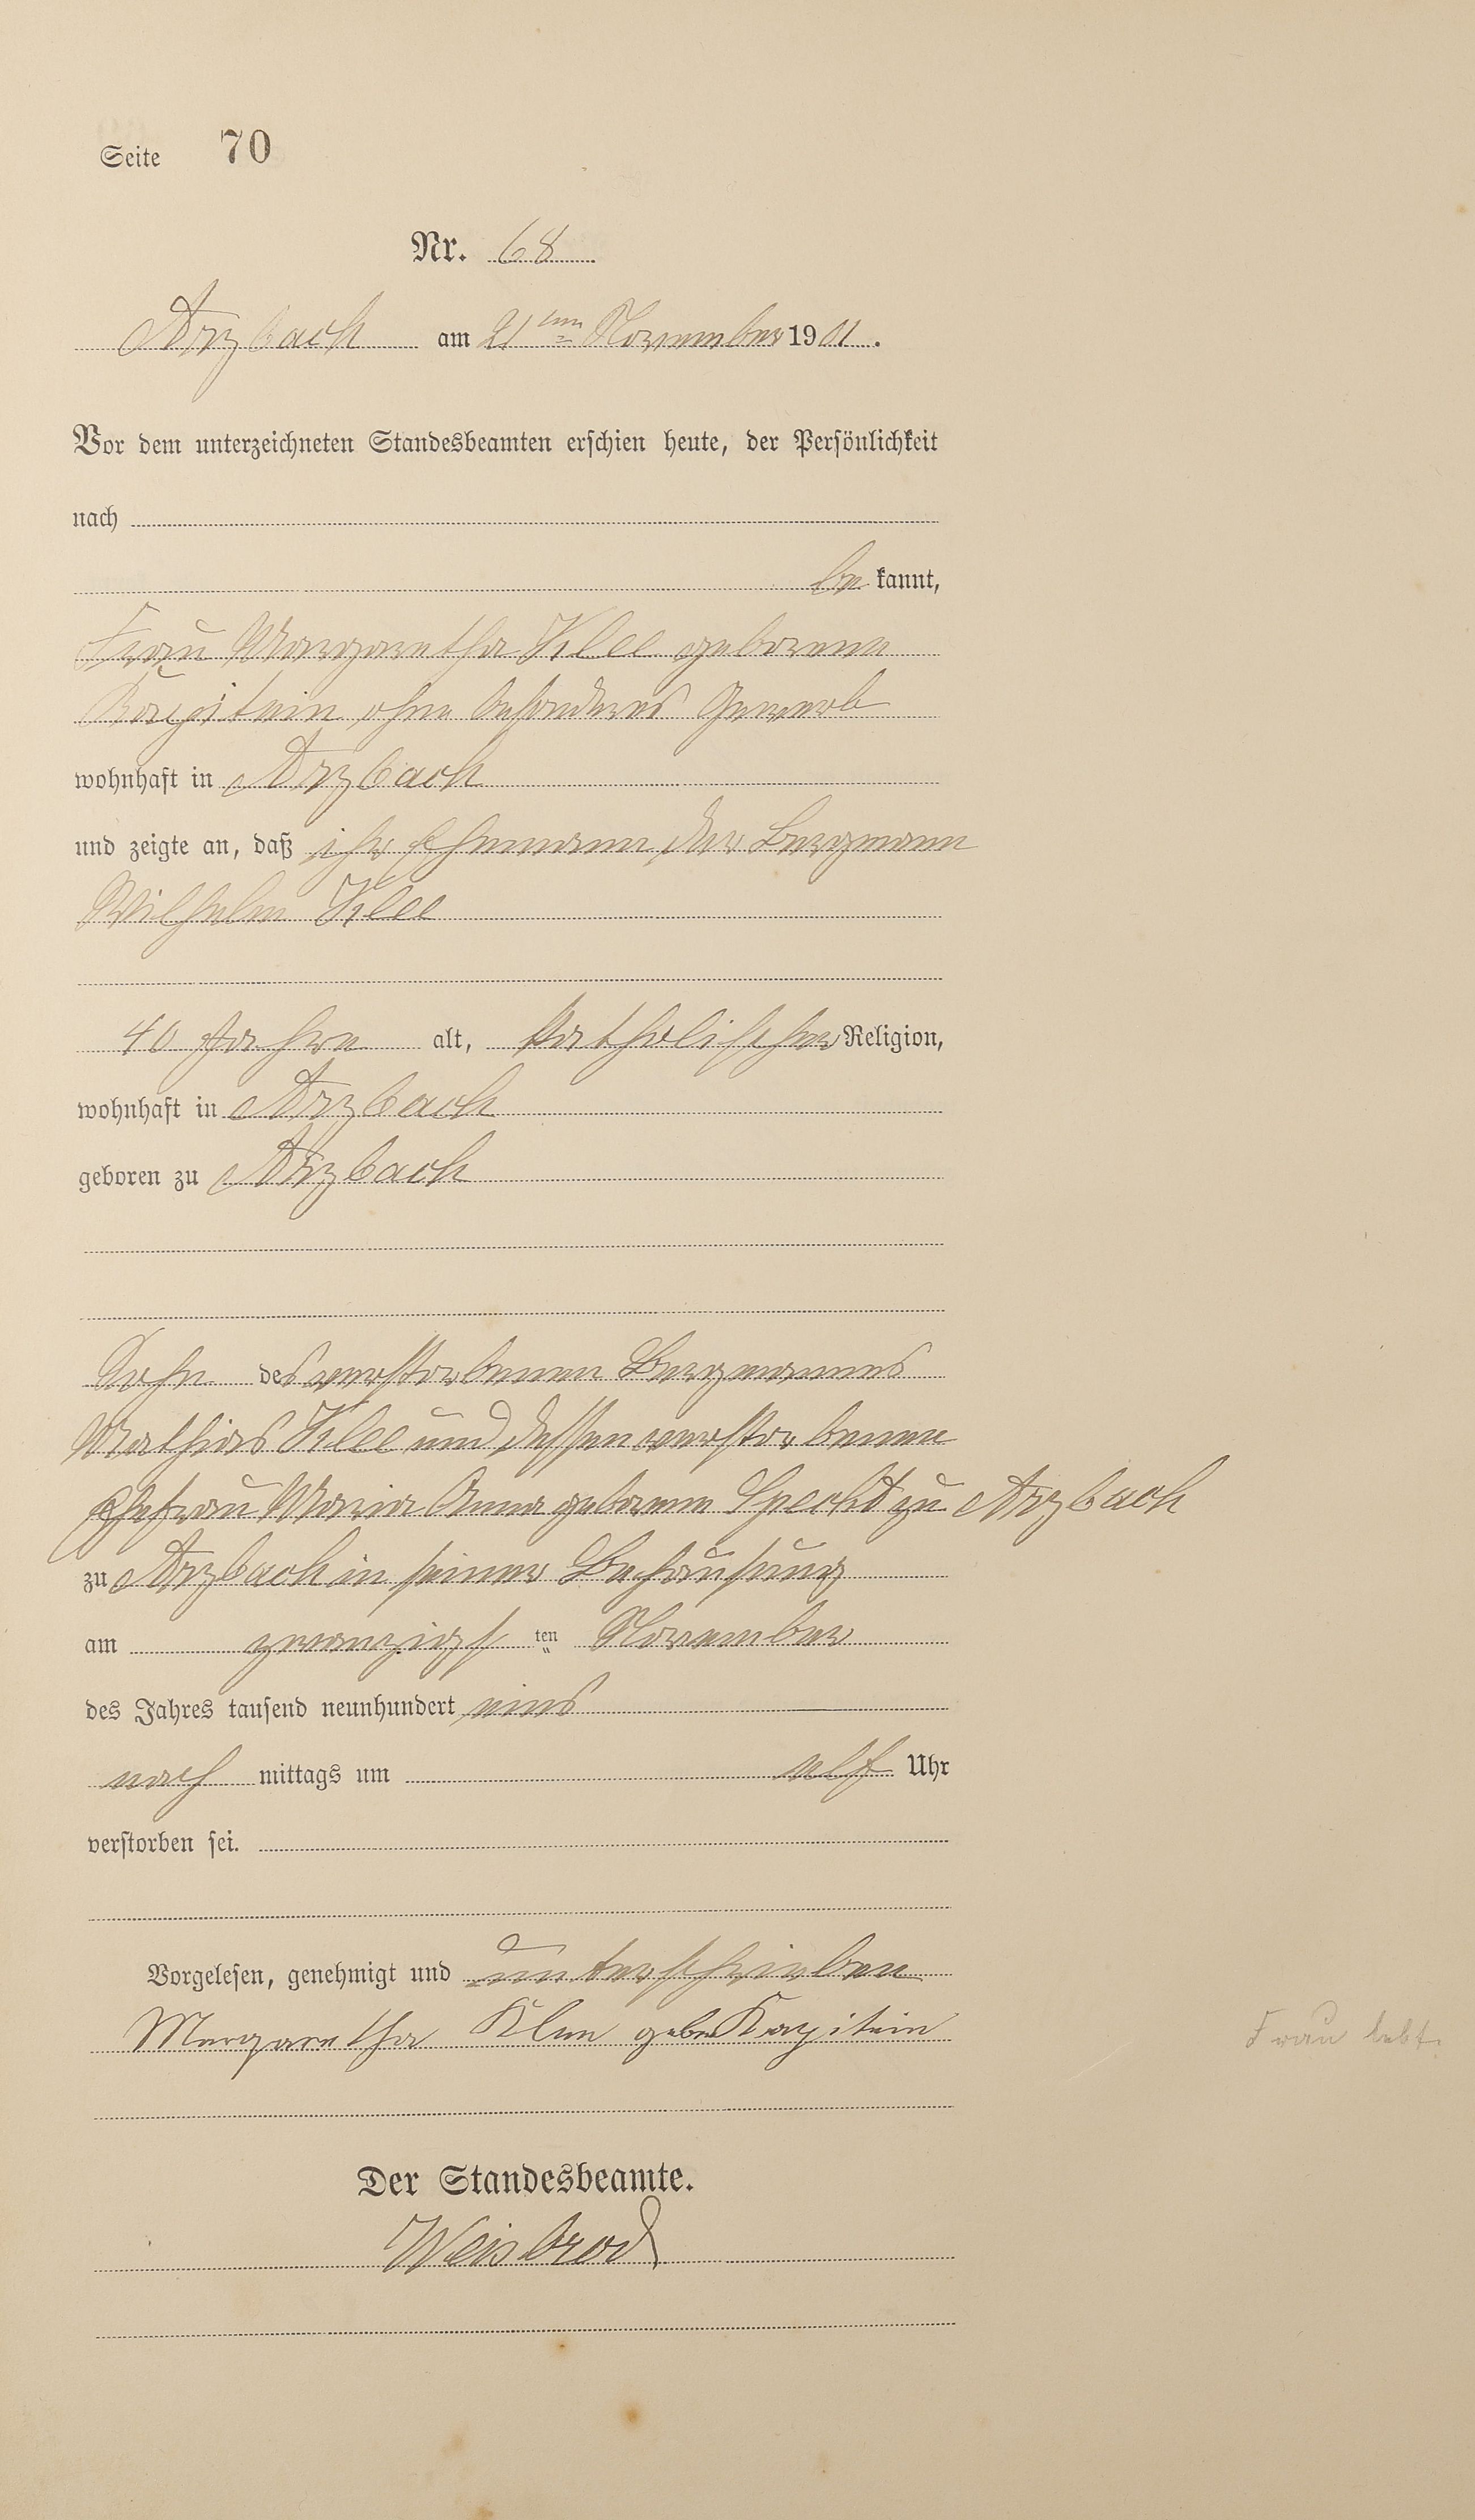 Seite 70
Nr. 68
Arzbach am 21ten November 1901.
Vor dem unterzeichneten Standesbeamten erschien heute, der Persönlichkeit
nach
be kannt,
Frau Margaretha Klee geborene
Kapitein ohne besonderes Gewerb
wohnhaft in Arzbach
und zeigte an, daß ihr Ehemann, der Bergmann
Wilhelm Klee
40 Jahre alt, katholischer Religion,
wohnhaft in Arzbach
geboren zu Arzbach
Sohn des verstorbenen Bergmannes
Mathias Klee und dessen verstorbenen
Ehefrau Maria Anna geborene Specht zu Arzbach
zu Arzbach in seiner Behausung
am zwanzigsten November
des Jahres tausend neunhundert eins
nach mittags um elf Uhr
verstorben sei.
Vorgelesen, genehmigt und unterschrieben
Margaretha Klee geb Kapitein
Frau lebt.
Der Standesbeamte.
Weisbrod